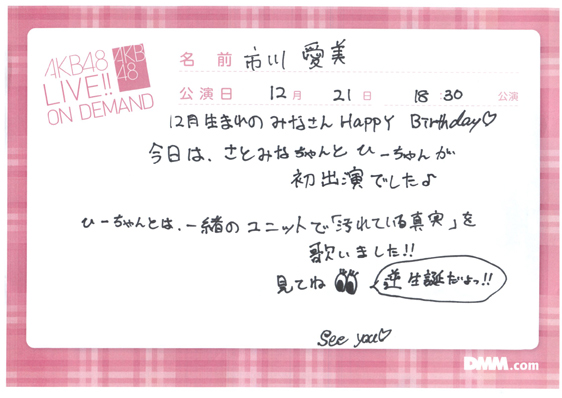 AKB48
LIVE!!
ON DEMAND
AKB
48
名 前 市川 愛美
公演日 12月 21日 18:30 公演
12月生まれのみなさん Happy Birthday♡
今日は、さとみなちゃんと ひーちゃんが
初出演でしたよ
ひーちゃんとは、一緒のユニットで「汚れている真実」を
歌いました!!
見てね
逆 生誕だよっ!!
See you♡
DMM.com